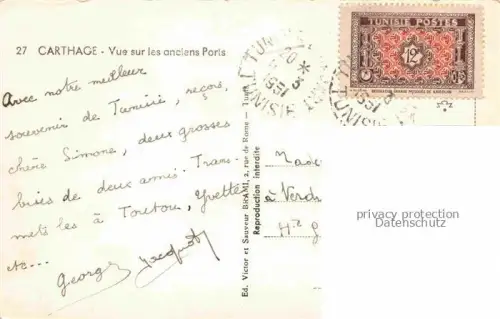 27 CARTHAGE - Vue sur les anciens Ports
Avec notre meilleur
souvenir de Tunisie, reçois,
chère Simone, deux grosses
bises de deux amis. Trans-
mets les à Toutou, Yvette
etc...
Georges Jacquot
Ed. Victor et Sauveur BRAMI, 2, rue de Rome - Tunis
Reproduction interdite
TUNISIE POSTES
12F
TUNIS
TUNISIE
1951
Made
à Verdu
Hte G
privacy protection
Datenschutz